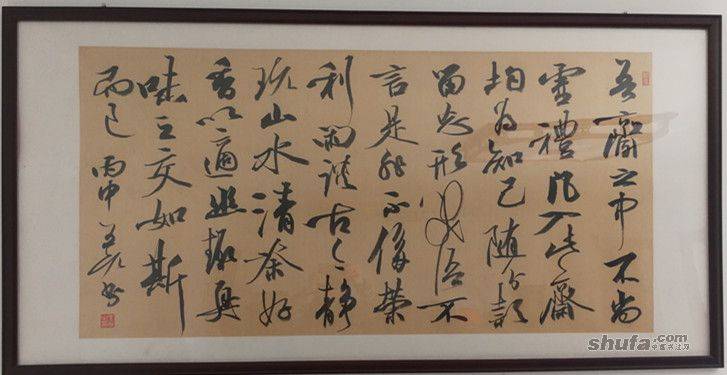 吾齋之中不尚
虚禮凡入此齋
均为知己随分款
留忘形笑語不
言是非不侈荣
利闲談古今静
玩山水清茶好
香以適幽趣臭
味之交如斯
而已 丙申 书
shufa.com